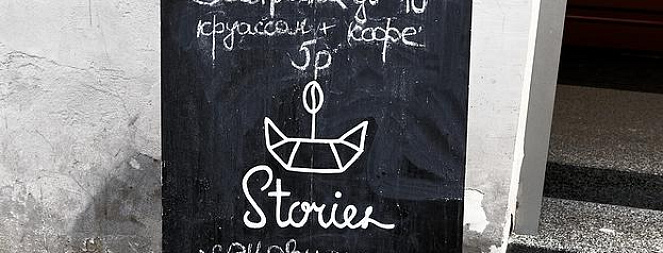 до 10
круассан + кофе
5р
Stories